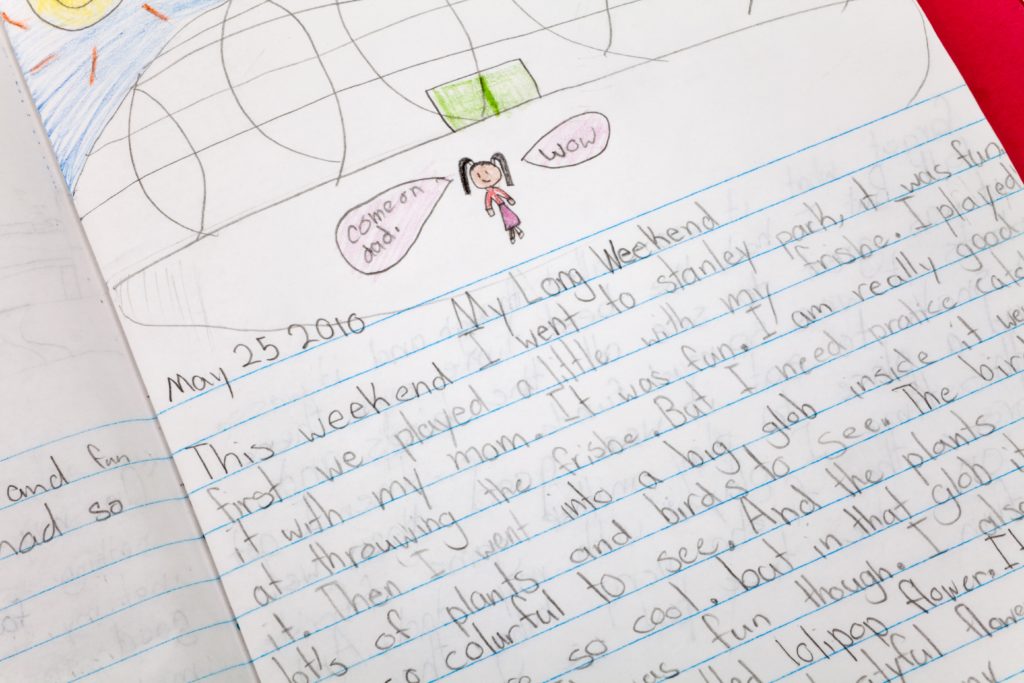 wow
come on
dad.
May 25 2010 My Long Weekend
This weekend I went to stanley park, it was fun.
first we played a little with my frisbe. I played
it with my mom. It was fun. I am really good
at throuwing the frisbe. But I need pratice catch
it. Then I went into a big glob inside it we
lot's of plants and birds to see. The bird
so colurful to see. And the plants
so cool. but in that glob it
was fun though. I also
lolipop flower. I
flowe
my
and fun
had so